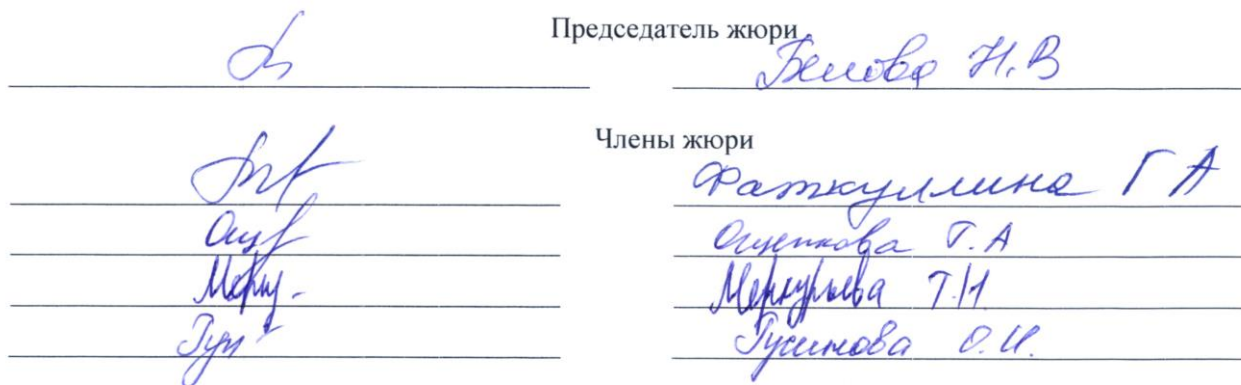 Председатель жюри
Белова Н.В
Члены жюри
Фаткуллина Г А
Ощепкова Г.А
Меркурьева Т.Н
О.И.